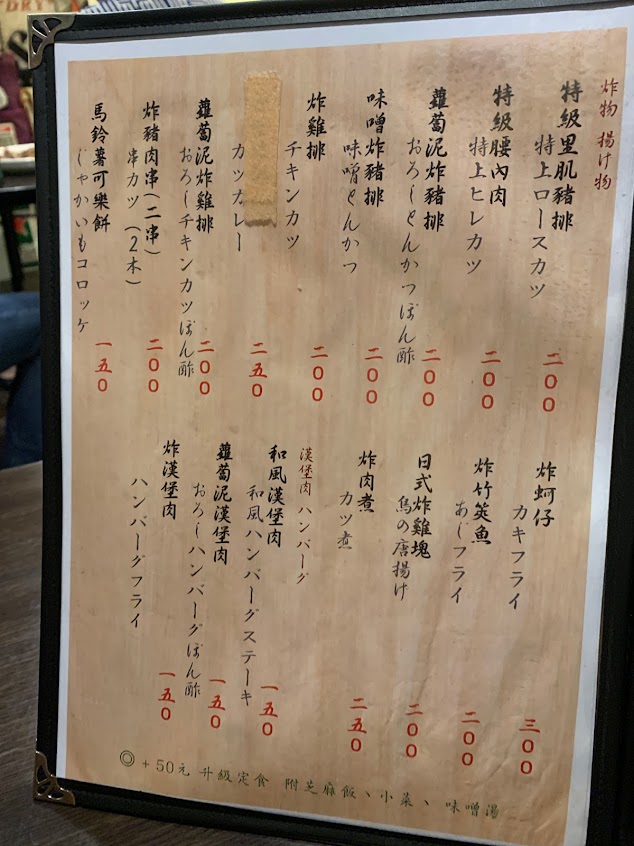 炸物 揚げ物
特級里肌豬排
特上ロースカツ
二00
特級腰內肉
特上ヒレカツ
二00
蘿蔔泥炸豬排
おろしとんかつぽん酢
二00
味噌炸豬排
味噌とんかつ
二00
炸雞排
チキンカツ
二00
カツカレー
二五0
蘿蔔泥炸雞排
おろしチキンカツぽん酢
二00
炸豬肉串(二串)
串カツ(2本)
二00
馬鈴薯可樂餅
じゃかいもコロッケ
一五0
炸蚵仔
カキフライ
三00
炸竹筴魚
あじフライ
二00
日式炸雞塊
鳥の唐揚げ
二00
炸肉煮
カツ煮
二五0
漢堡肉 ハンバーグ
和風漢堡肉
和風ハンバーグステーキ
一五0
蘿蔔泥漢堡肉
おろしハンバーグぽん酢
一五0
炸漢堡肉
ハンバーグフライ
一五0
◎ +50元 升級定食 附芝麻飯、小菜、味噌湯